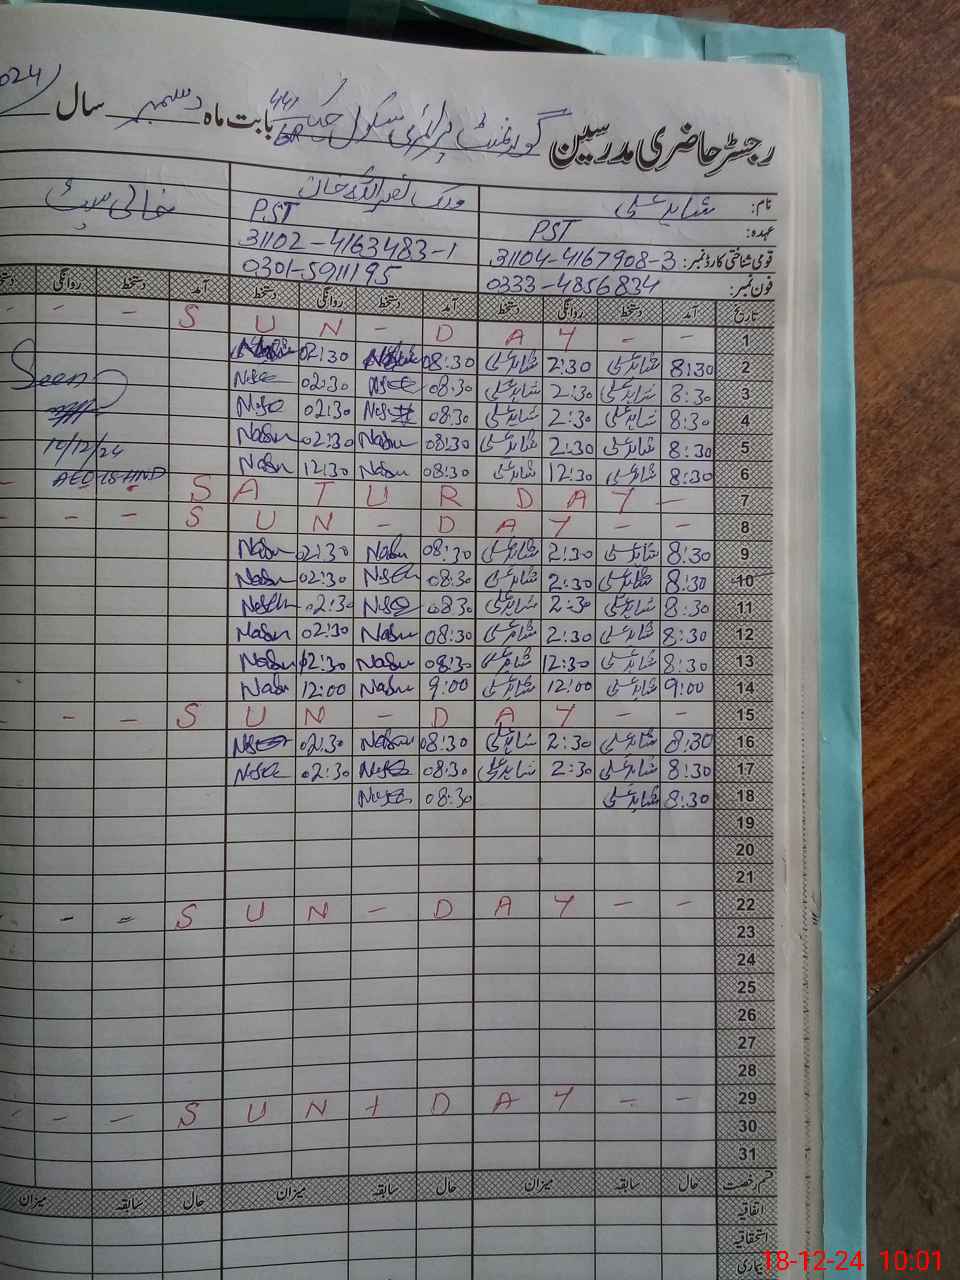 رجسٹر حاضری مدرسین گورنمنٹ پرائمری سکول چک 441 بابت ماہ دسمبر سال 2024
نام: شاہد علی خالی سیٹ
عہدہ: PST PST
قومی شناختی کارڈ نمبر: 31104-4167908-3 31102-4163483-1
فون نمبر: 0333-4856834 0301-5911195
تاریخ آمد دستخط روانگی دستخط آمد دستخط روانگی دستخط آمد دستخط روانگی
1 - - S U N - D A Y - -
2 8:30 شاہد علی 2:30 شاہد علی 08:30 02:30
3 8:30 شاہد علی 2:30 شاہد علی 08:30 02:30
Seen
4 8:30 شاہد علی 2:30 شاہد علی 08:30 02:30
5 8:30 شاہد علی 2:30 شاہد علی 08:30 02:30
14/12/24
6 8:30 شاہد علی 12:30 شاہد علی 08:30 12:30
7 - S A T U R D A Y -
8 - - S U N - D A Y - -
9 8:30 شاہد علی 2:30 شاہد علی 08:30 02:30
10 8:30 شاہد علی 2:30 شاہد علی 08:30 02:30
11 8:30 شاہد علی 2:30 شاہد علی 08:30 02:30
12 8:30 شاہد علی 2:30 شاہد علی 08:30 02:30
13 8:30 شاہد علی 12:30 شاہد علی 08:30 12:30
14 9:00 شاہد علی 12:00 شاہد علی 9:00 12:00
15 - - S U N - D A Y - -
16 8:30 شاہد علی 2:30 شاہد علی 08:30 02:30
17 8:30 شاہد علی 2:30 شاہد علی 08:30 02:30
18 8:30 شاہد علی 08:30
19
20
21
22 - - S U N - D A Y - -
23
24
25
26
27
28
29 - - S U N - D A Y - -
30
31
قسم رخصت حال سابقہ میزان حال سابقہ میزان حال سابقہ میزان
اتفاقیہ
استحقاقیہ
بیماری
18-12-24 10:01